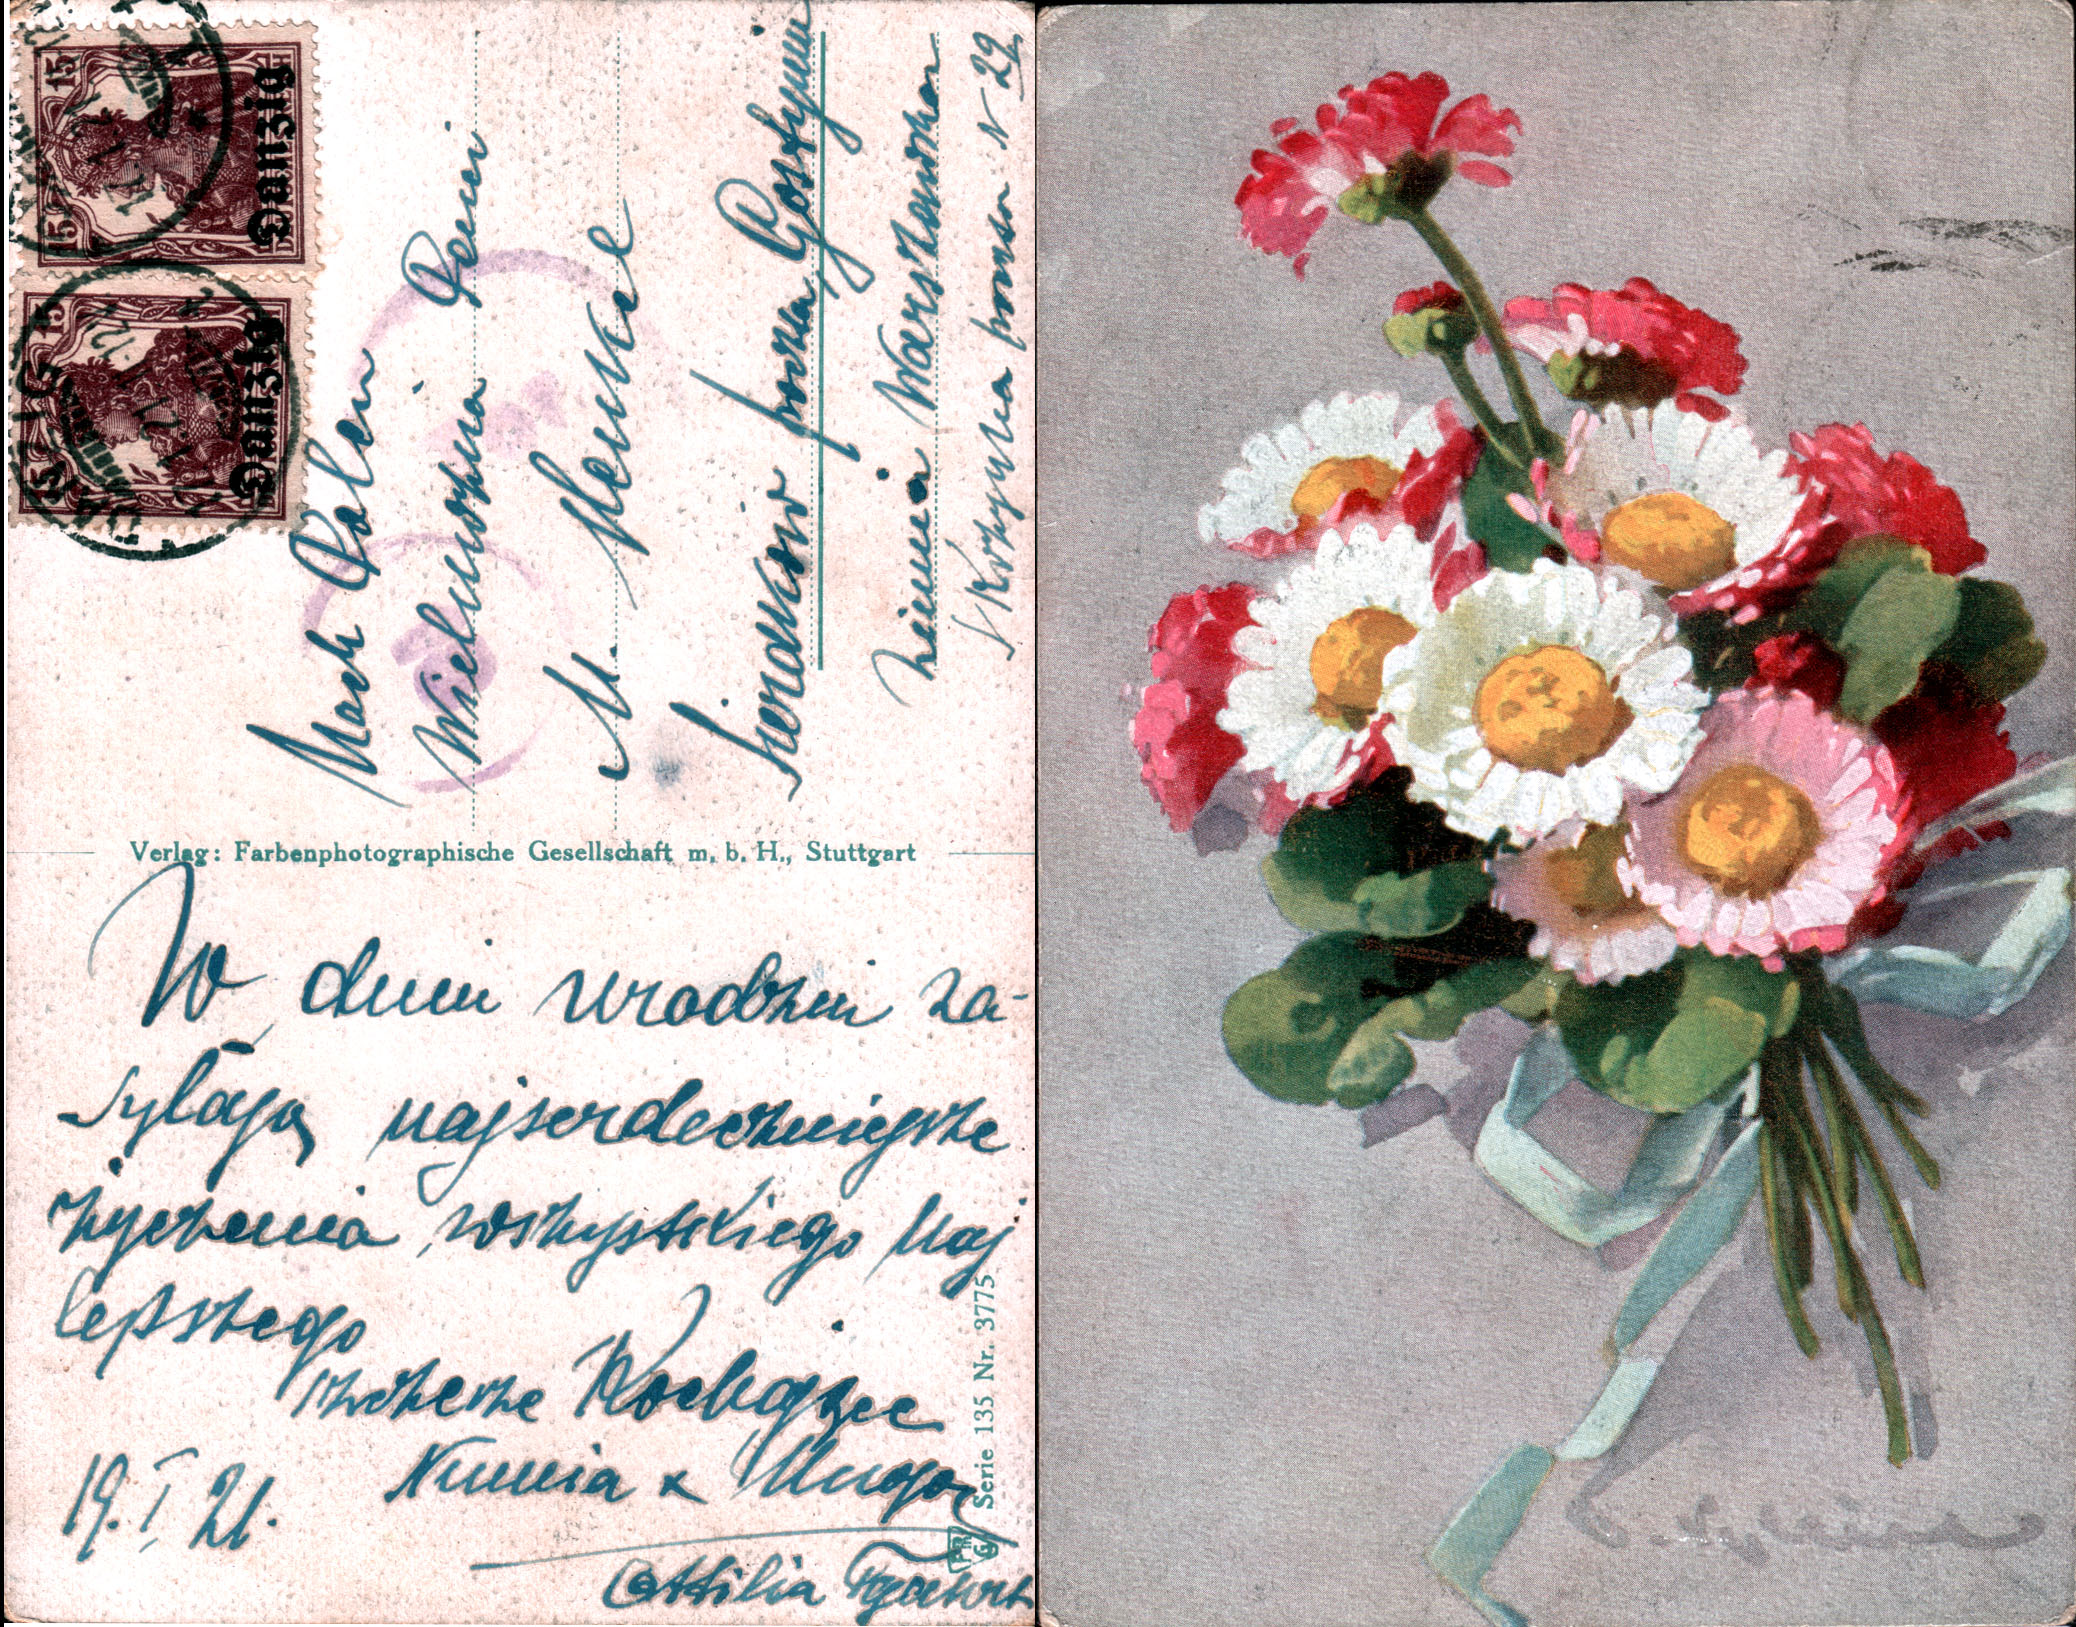 15
15
Danzig
15
15
Danzig
DANZIG
Nach Polen
Wielmożna Pani
M. Hensel
Sieraków poczta Gostynin
ziemia Warszawska
Skrzynka poczto. N 29
Verlag: Farbenphotographische Gesellschaft m. b. H., Stuttgart
W dniu urodzin za-
syłają najserdeczniejsze
życzenia wszystkiego Naj
lepszego
szczerze Kochające
Niunia x
19. I 21.
Ottilia
Serie 135 Nr. 3775